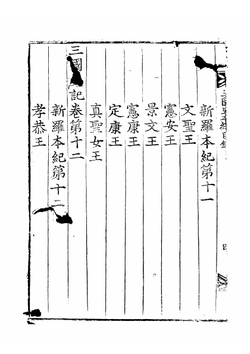 新羅本紀第十一
文聖王
憲安王
景文王
憲康王
定康王
真聖女王
三國記卷第十二
新羅本紀第十二
孝恭王